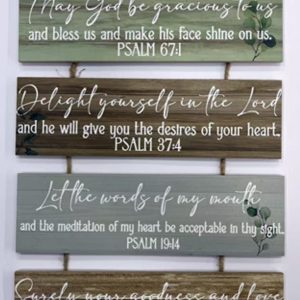 May God be gracious to us
and bless us and make his face shine on us.
PSALM 67:1
Delight yourself in the Lord
and he will give you the desires of your heart.
PSALM 37:4
Let the words of my mouth
and the meditation of my heart be acceptable in thy sight.
PSALM 19:14
Surely your goodness and love